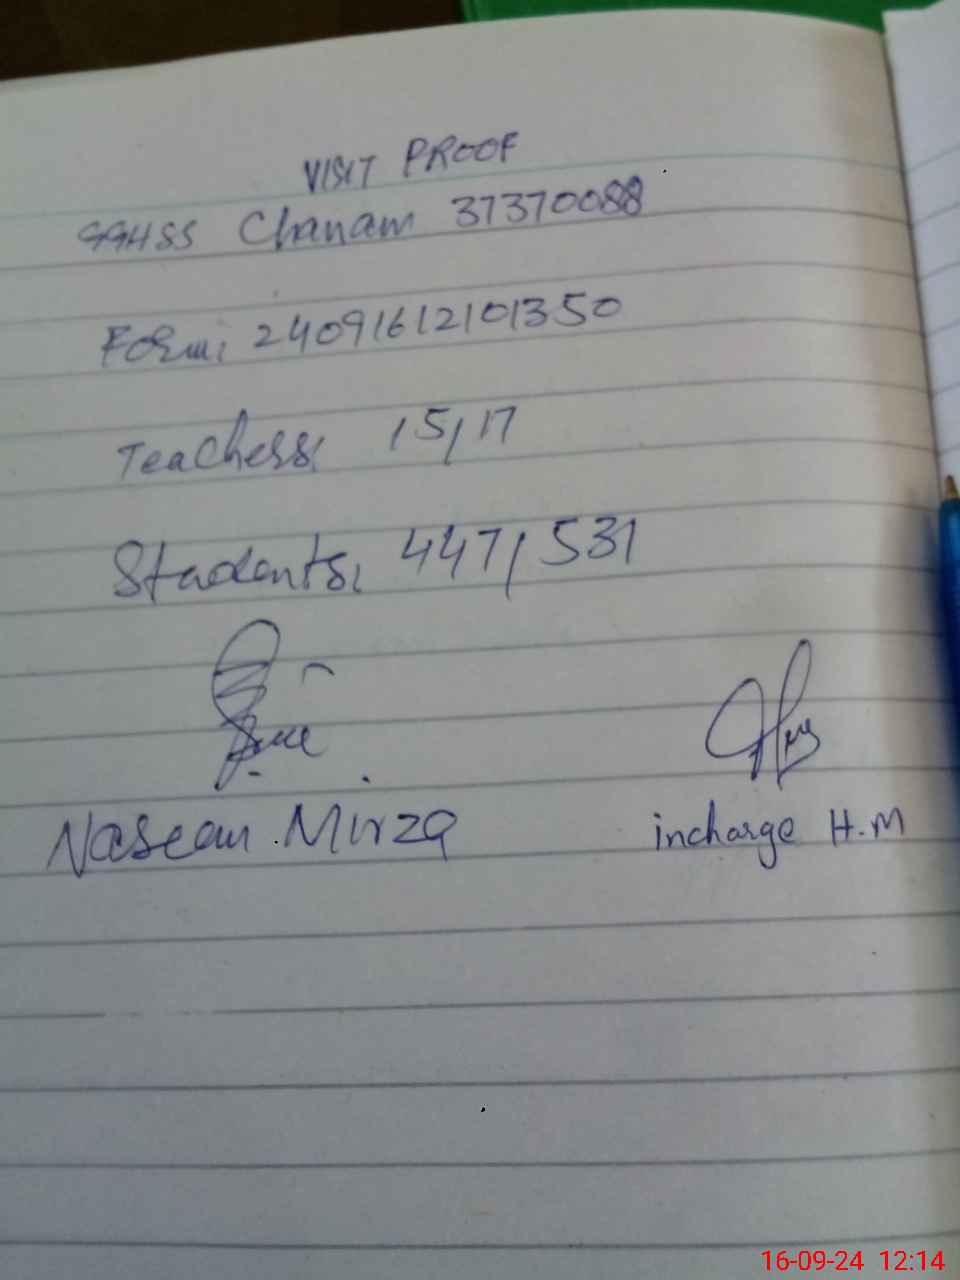 VISIT PROOF
GGHSS Chanam 37370088
Form: 24091612101350
Teachers: 15/17
Students: 447/531
Naseem Mirza
incharge H.M
16-09-24 12:14